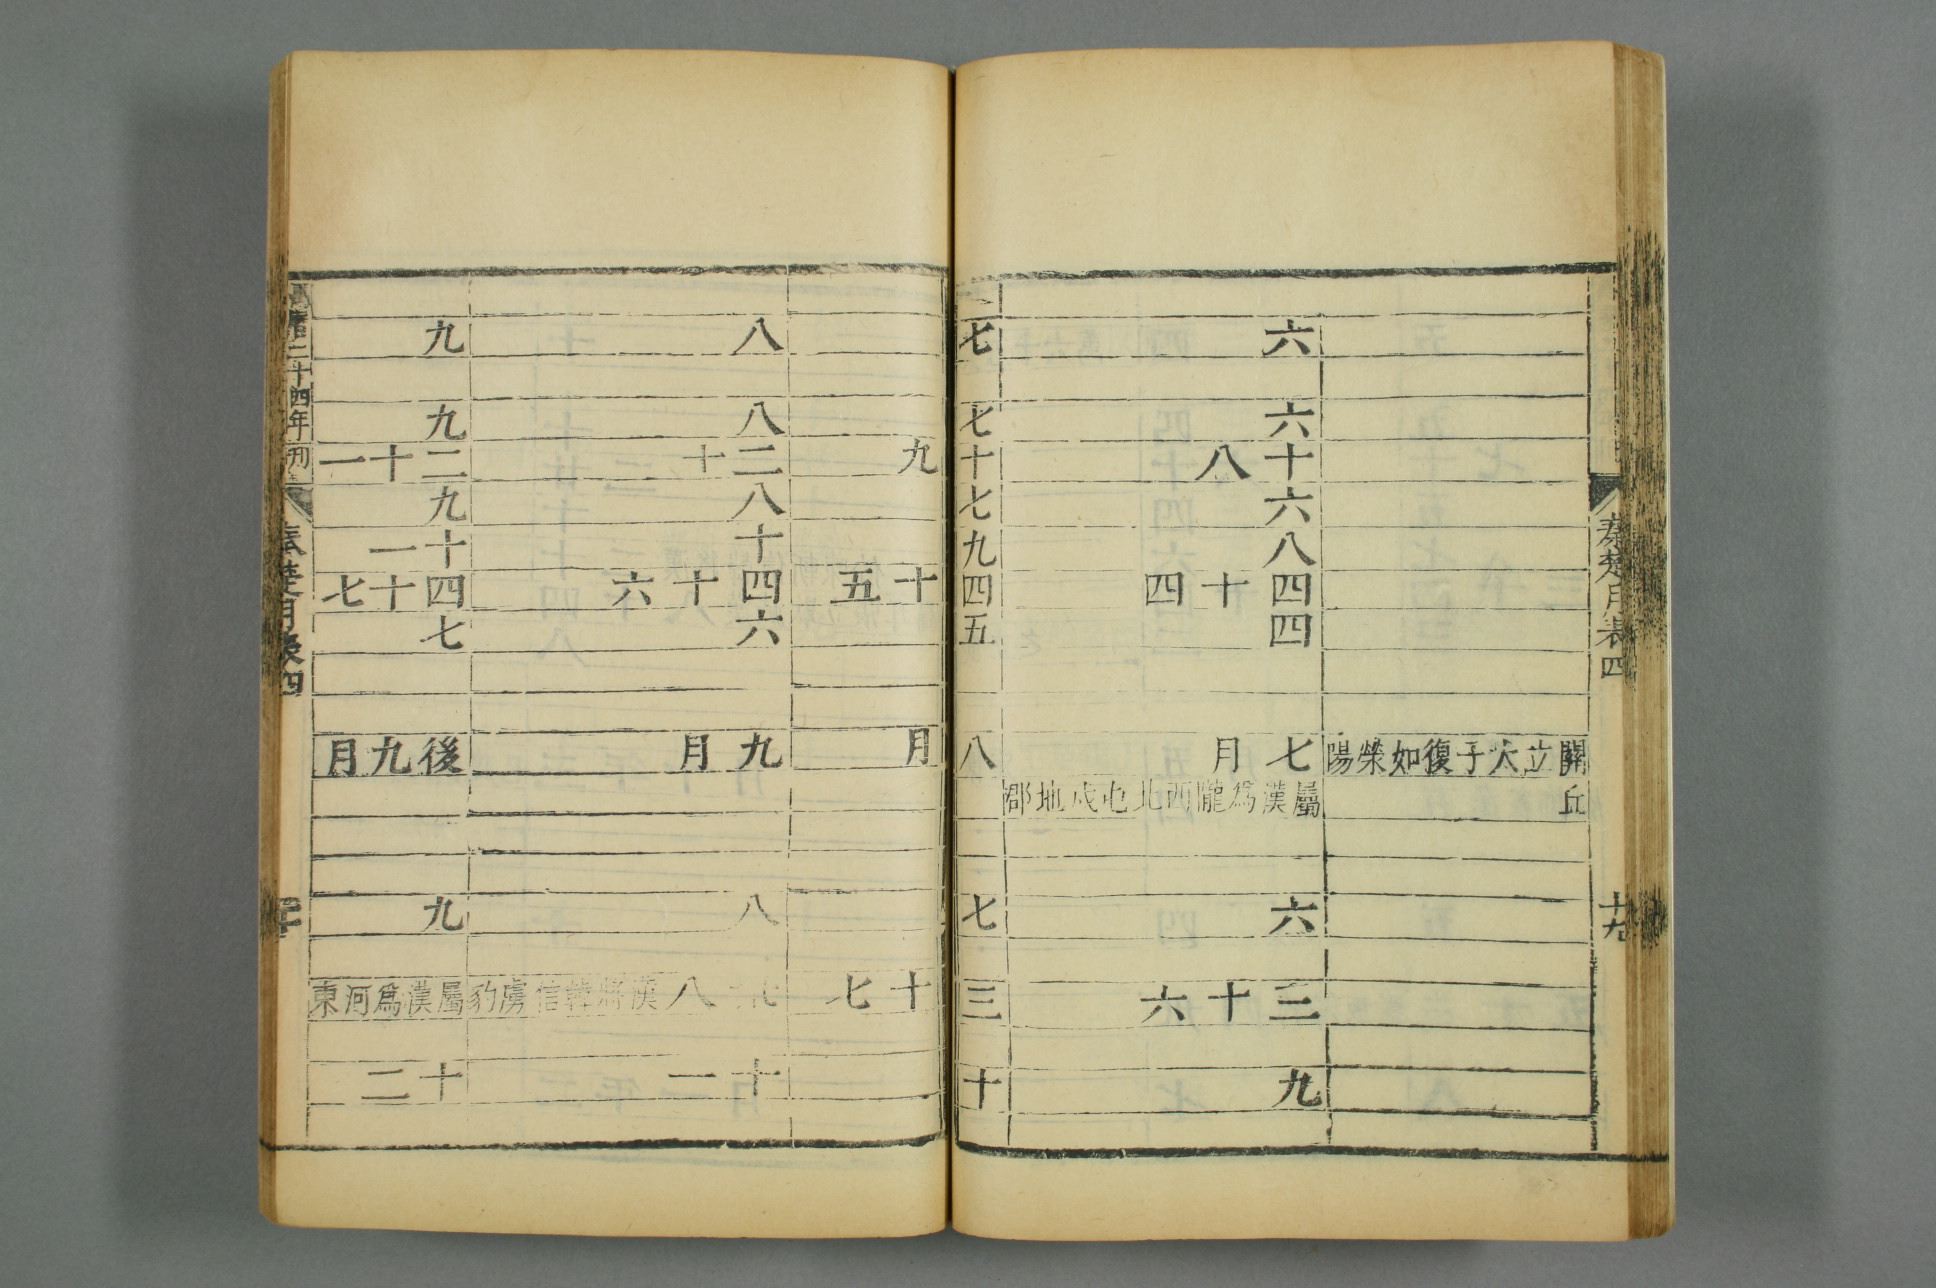 秦楚月表四
十九
關立太子復如滎陽
丘
六
六
十八
六
八
四十四
四
七月
屬漢爲隴西北地郡
六
三十六
九
七
七
十九
七
九
四十五
五
八月
七
三十七
十
八
八
二十
八
十
四十六
六
九月
八
八漢將韓信虜豹
十一
九
九
二十一
九
十一
四十七
七
後九月
九
屬漢爲河東
十二
萬曆二十四年刊
秦楚月表四